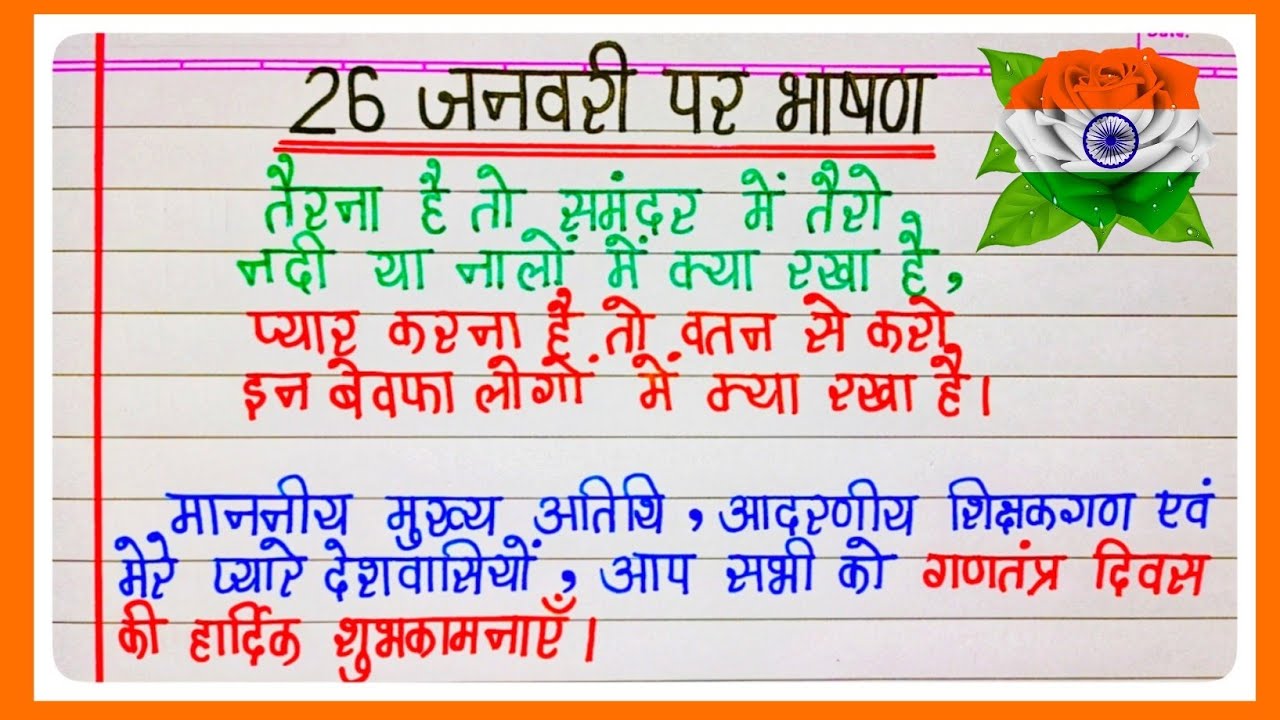 26 जनवरी पर भाषण
तैरना है तो समंदर में तैरो
नदी या नालों में क्या रखा है,
प्यार करना है तो वतन से करो
इन बेवफा लोगों में क्या रखा है।
माननीय मुख्य अतिथि, आदरणीय शिक्षकगण एवं
मेरे प्यारे देशवासियों, आप सभी को गणतंत्र दिवस
की हार्दिक शुभकामनाएँ।